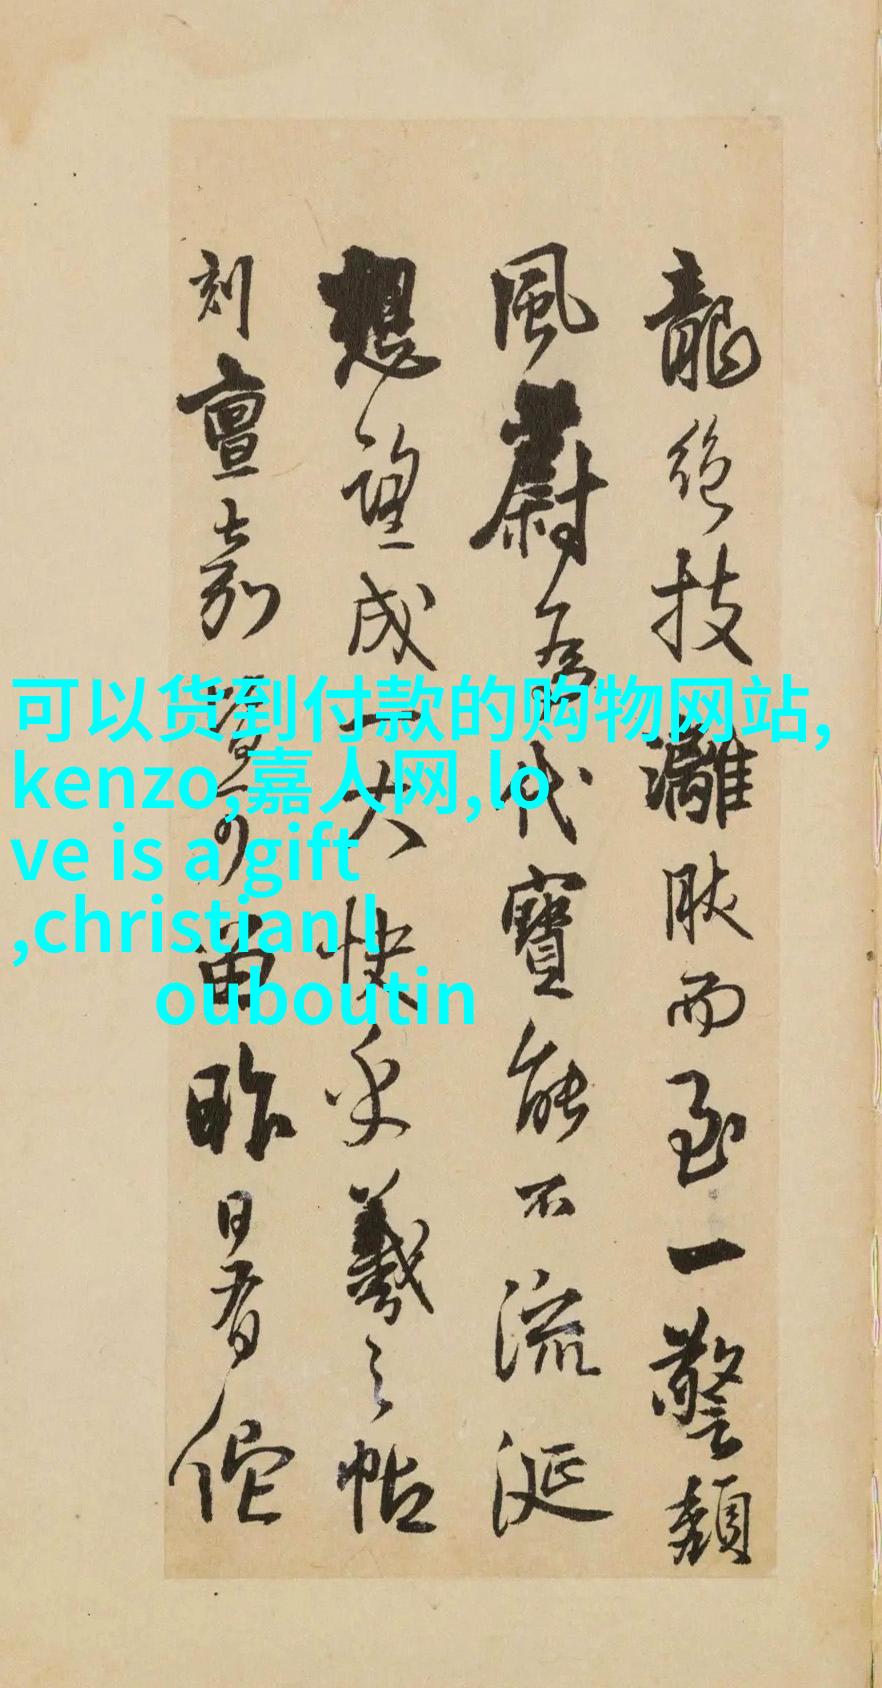 龍絕技灕肤而至一警頽
風蔚爲代寶能不流涎
想望成一大快乎羲之帖
刻亶嘉
昨日看
可以货到付款的购物网站,
kenzo,嘉人网,lo
ve is a gift
,christian l
ouboutin